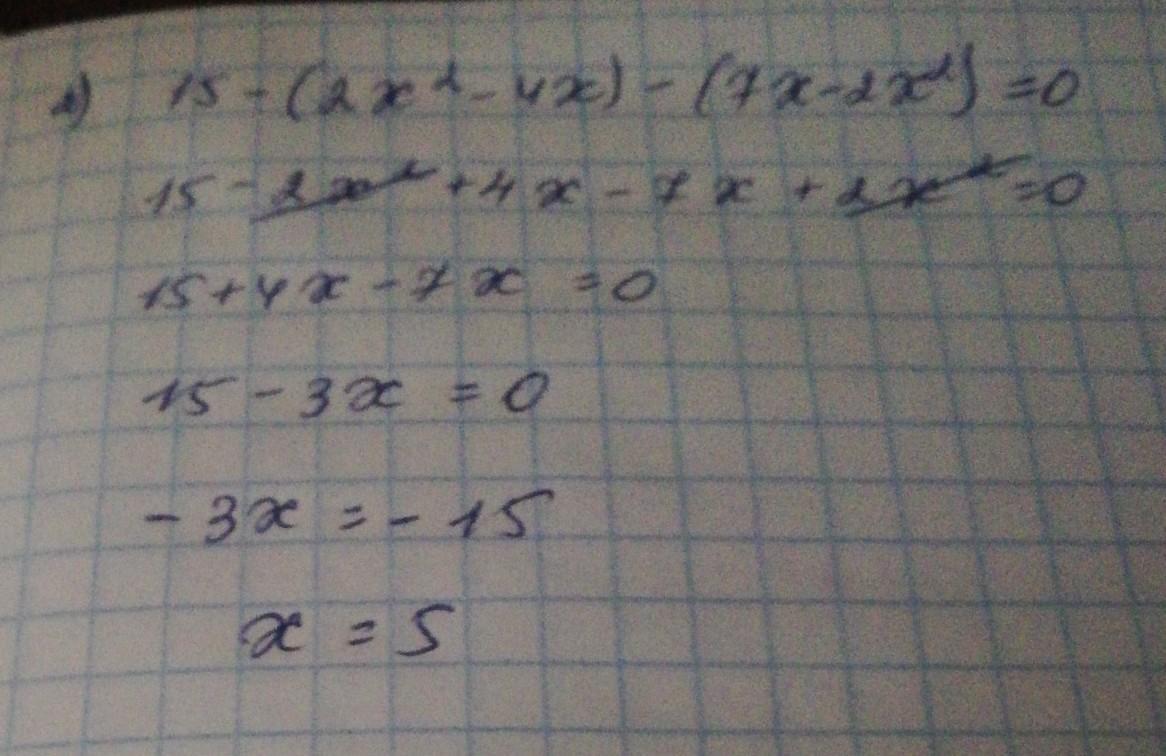 1) 15 - (2x² - 4x) - (7x - 2x²) = 0
15 - 2x² + 4x - 7x + 2x² = 0
15 + 4x - 7x = 0
15 - 3x = 0
- 3x = - 15
x = 5